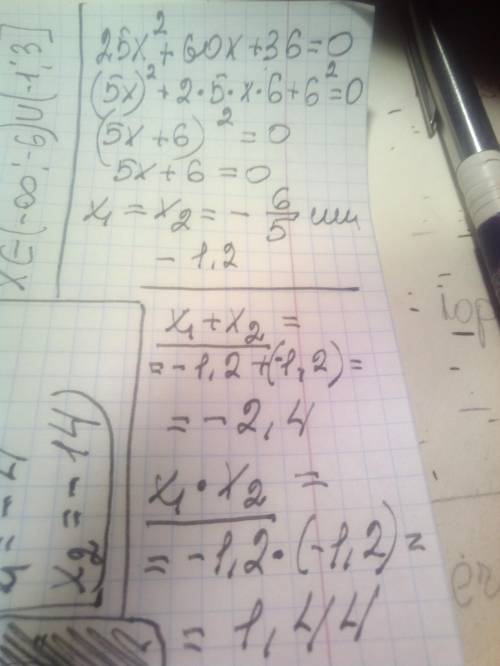 25x² + 60x + 36 = 0
(5x)² + 2·5·x·6 + 6² = 0
(5x + 6)² = 0
5x + 6 = 0
x₁ = x₂ = - 6/5 или
- 1,2
x₁ + x₂ =
= -1,2 + (-1,2) =
= - 2,4
x₁ · x₂ =
= -1,2 · (-1,2) =
= 1,44
x ∈ (-∞; -6) ∪ (-1; 3]
x₂ = -14)